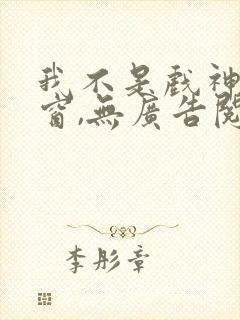 我不是戲神
窗,無廣告閱
李彤章